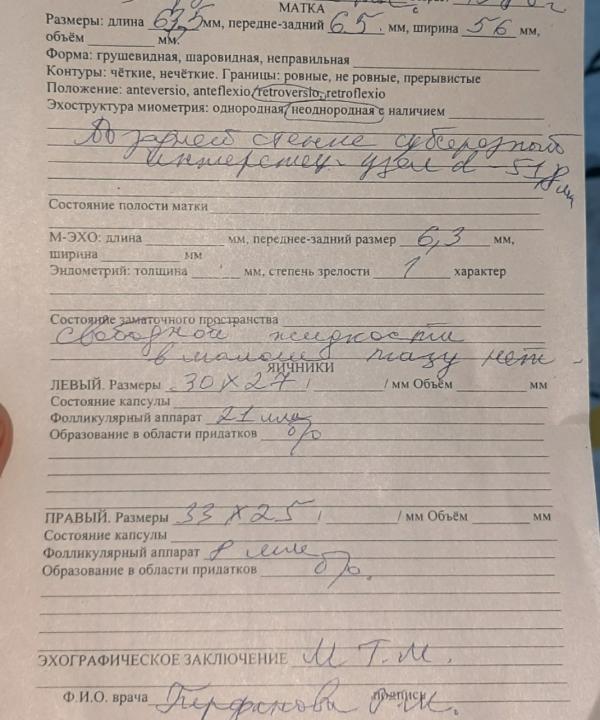 МАТКА
Размеры: длина 63,5 мм, передне-задний 65 мм, ширина 56 мм,
объём ________ мм.
Форма: грушевидная, шаровидная, неправильная
Контуры: чёткие, нечёткие. Границы: ровные, не ровные, прерывистые
Положение: anteversio, anteflexio, retroversio, retroflexio
Эхоструктура миометрия: однородная, неоднородная с наличием
По задней стенке субсерозный
интерстиц. узел d - 51,8 мм
Состояние полости матки
М-ЭХО: длина ________ мм, переднее-задний размер 6,3 мм,
ширина ________ мм
Эндометрий: толщина ________ мм, степень зрелости 1 характер
Состояние заматочного пространства
свободной жидкости
в малом тазу нет -
ЯИЧНИКИ
ЛЕВЫЙ. Размеры 30 х 27 / ________ / мм Объём ________ мм
Состояние капсулы
Фолликулярный аппарат 21 мм
Образование в области придатков б/о
ПРАВЫЙ. Размеры 33 х 25 / ________ / мм Объём ________ мм
Состояние капсулы
Фолликулярный аппарат 8 мм
Образование в области придатков б/о.
ЭХОГРАФИЧЕСКОЕ ЗАКЛЮЧЕНИЕ М Т.М.
Ф.И.О. врача подпись